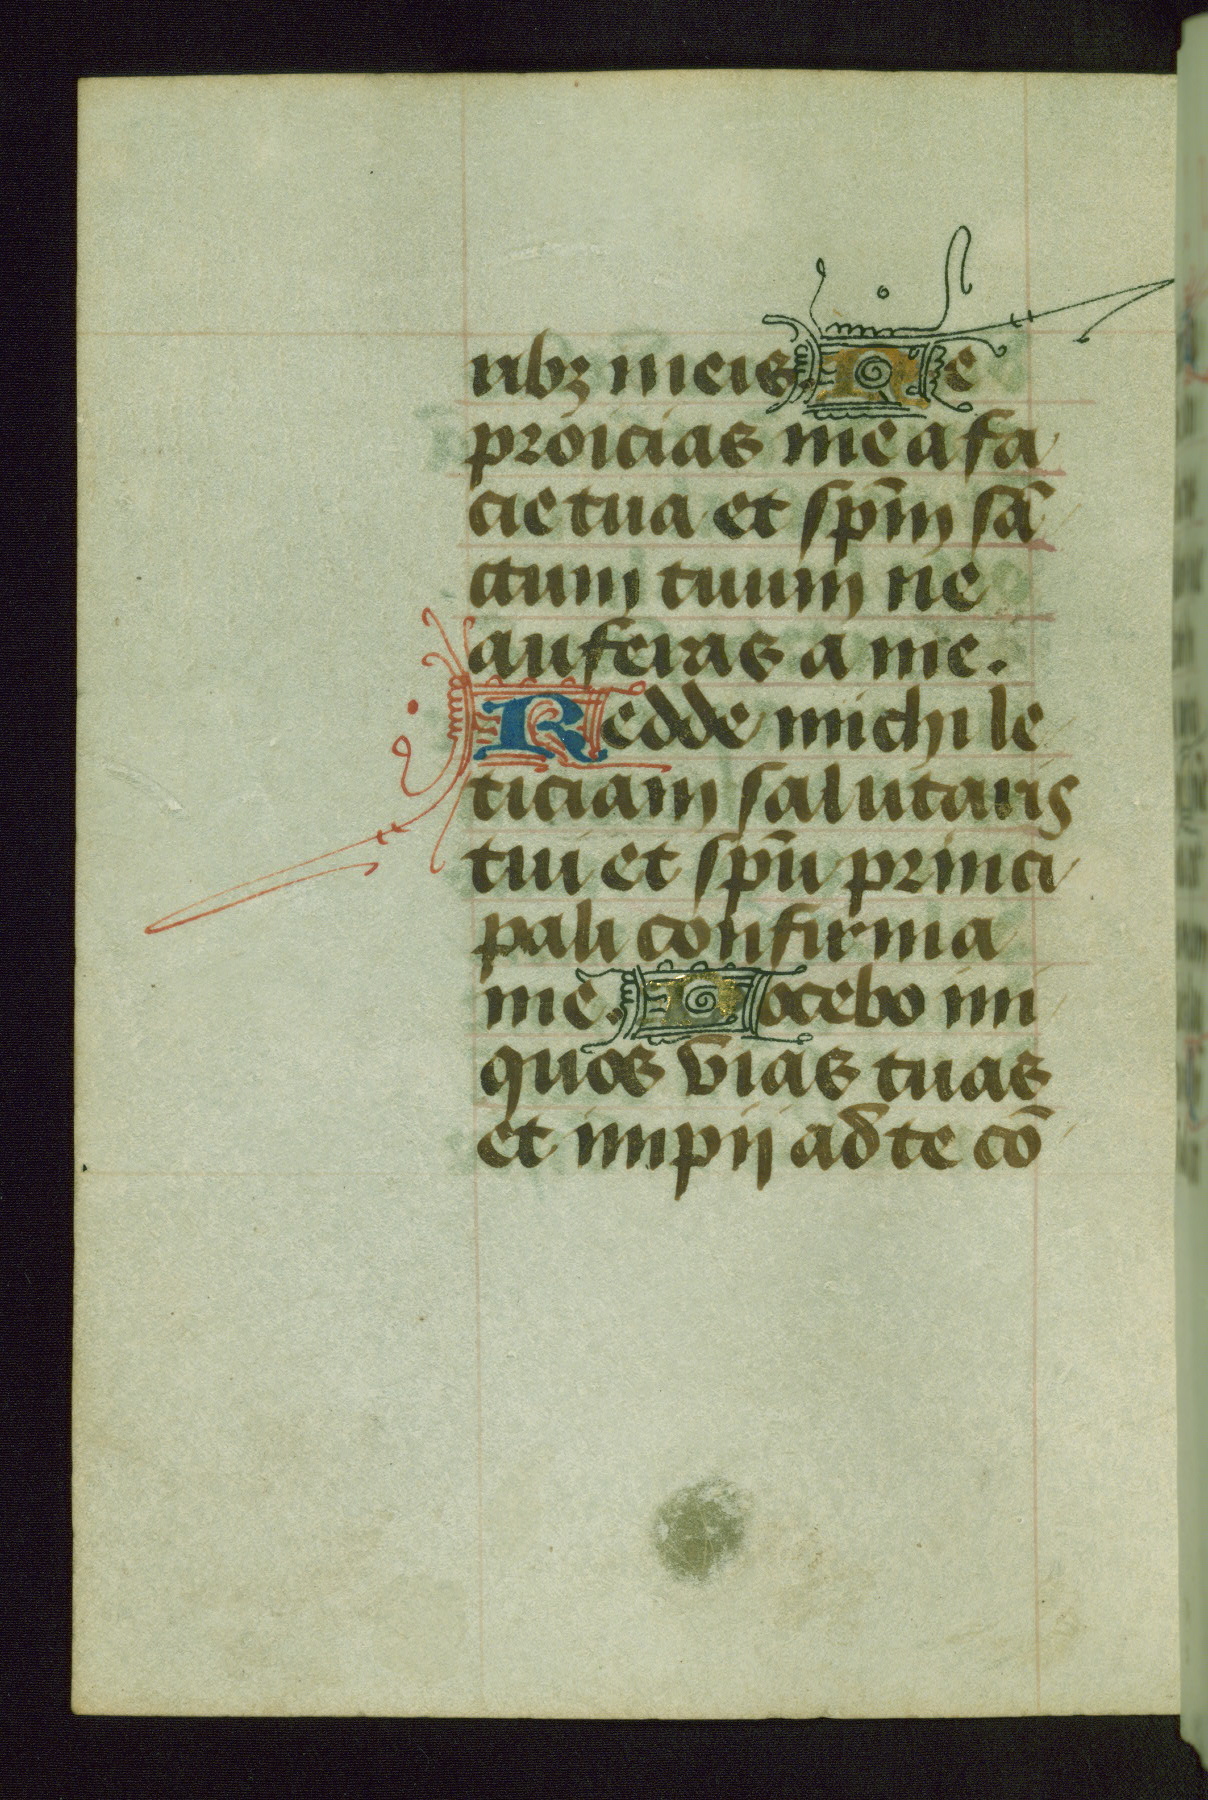 ribꝫ meis. Ne
proicias me a fa
cie tua et sp̄m sā
ctum tuum ne
auferas a me.
Redde michi le
ticiam salutaris
tui et sp̄u princi
pali confirma
me. Docebo ini
quos vias tuas
et impij ad te cō